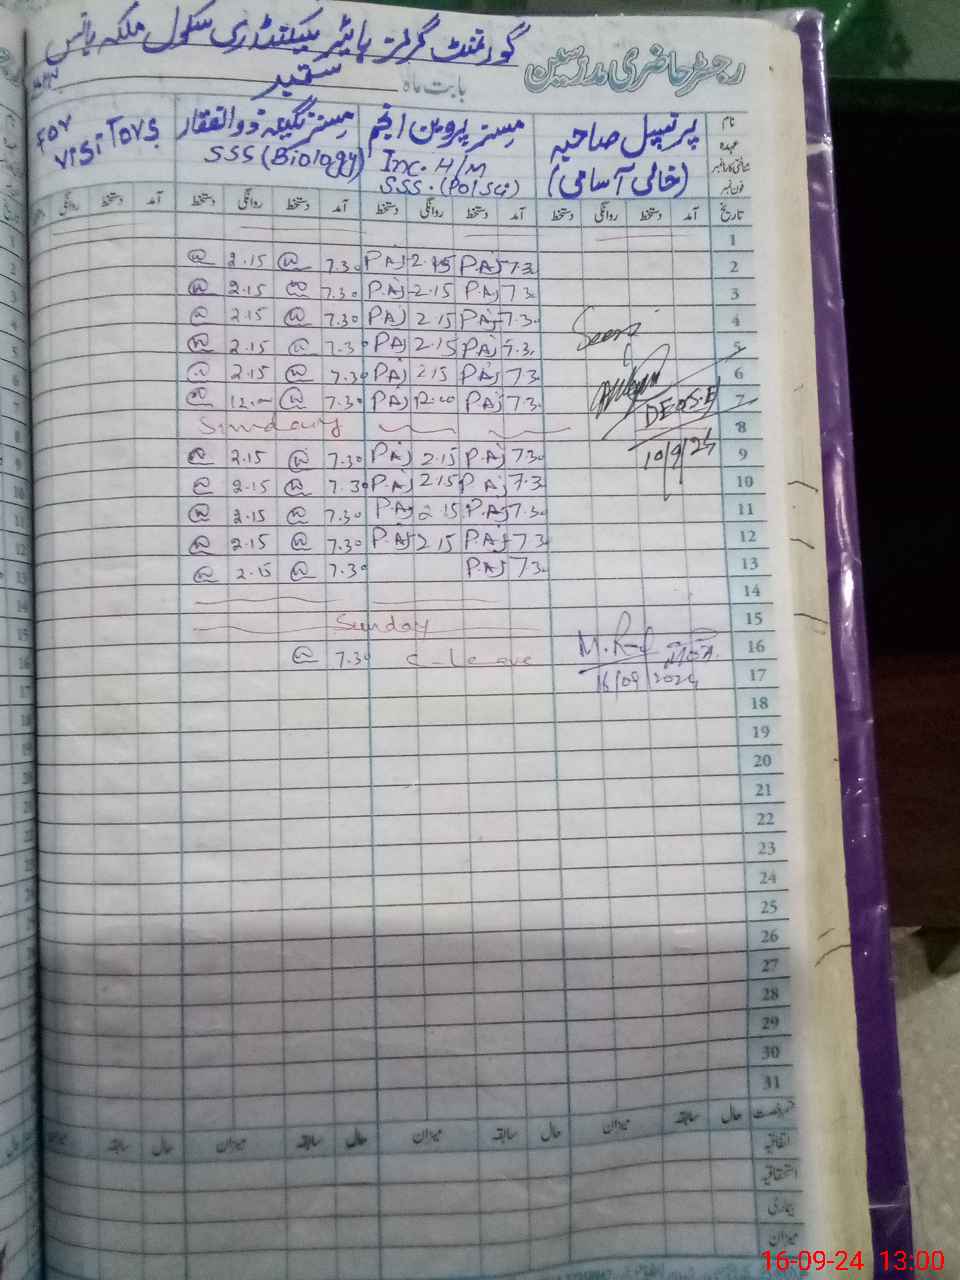 گورنمنٹ گرلز ہائیر سیکنڈری سکول ملکہ ہانس
رجسٹر حاضری مدرسین
بابت ماہ ستمبر
نام
عہدہ
فون نمبر
پرنسپل صاحبہ
(خالی آسامی)
مسز پروین انجم
Inc. H/M
SSS. (Pol Sci)
مسز نگینہ ذوالفقار
SSS (Biology)
For
Visitors
تاریخ آمد دستخط روانگی دستخط آمد دستخط روانگی دستخط آمد دستخط روانگی دستخط آمد دستخط روانگی
1
2 7.3 PAj 2.15 PAj 7.30 2.15
3 7.3 P.Aj 2.15 P.Aj 7.30 2.15
4 7.3 PAj 2.15 PAj 7.30 2.15
5 7.3 PAj 2.15 PAj 7.30 2.15
6 7.3 PAj 2.15 PAj 7.30 2.15
7 7.3 PAj 12.00 PAj 7.30 12.00
DEO S.E
8 Sunday
9 7.30 PAj 2.15 PAj 7.30 2.15
10/9/24
10 7.3 P.Aj 2.15 P.Aj 7.30 2.15
11 7.30 P.Aj 2.15 P.Aj 7.30 2.15
12 7.3 P.Aj 2.15 P.Aj 7.30 2.15
13 7.3 P.Aj 7.30 2.15
14
15 Sunday
16 C-Leave 7.30
17 16/09/2024
18
19
20
21
22
23
24
25
26
27
28
29
30
31
حال سابقہ میزان حال سابقہ میزان حال سابقہ میزان حال سابقہ میزان
اتفاقیہ
استحقاقیہ
بیماری
میزان
16-09-24 13:00